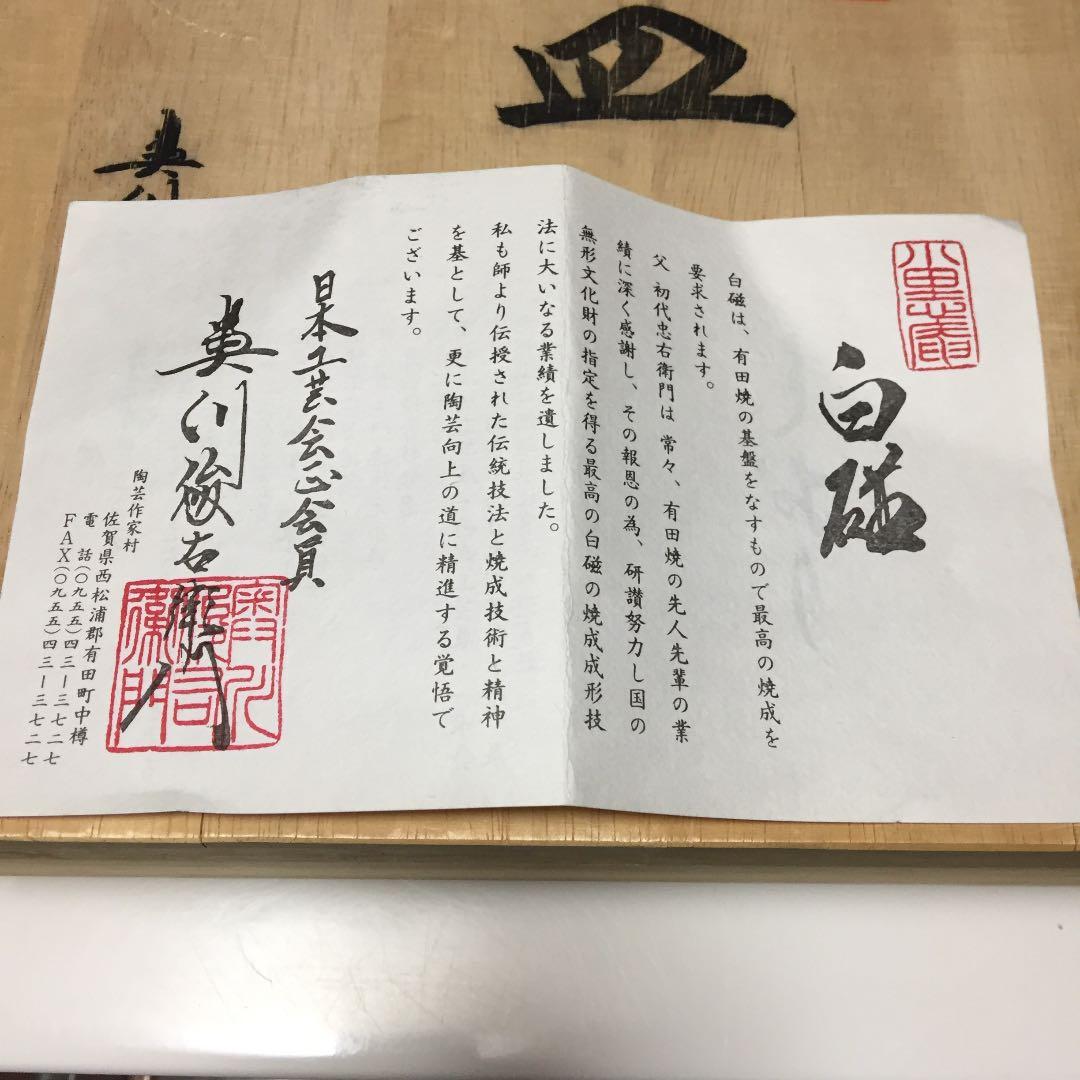 皿
英川
白磁
白磁は、有田焼の基盤をなすもので最高の焼成を
要求されます。
父 初代忠右衛門は 常々、有田焼の先人先輩の業
績に深く感謝し、その報恩の為、研讃努力し国の
無形文化財の指定を得る最高の白磁の焼成成形技
法に大いなる業績を遺しました。
私も師より伝授された伝統技法と焼成技術と精神
を基として、更に陶芸向上の道に精進する覚悟で
ございます。
日本工芸会正会員
英川俊右衛門
陶芸作家村
佐賀県西松浦郡有田町中樽
電 話(〇九五五)四三ー三七二七
FAX(〇九五五)四三ー三七二七